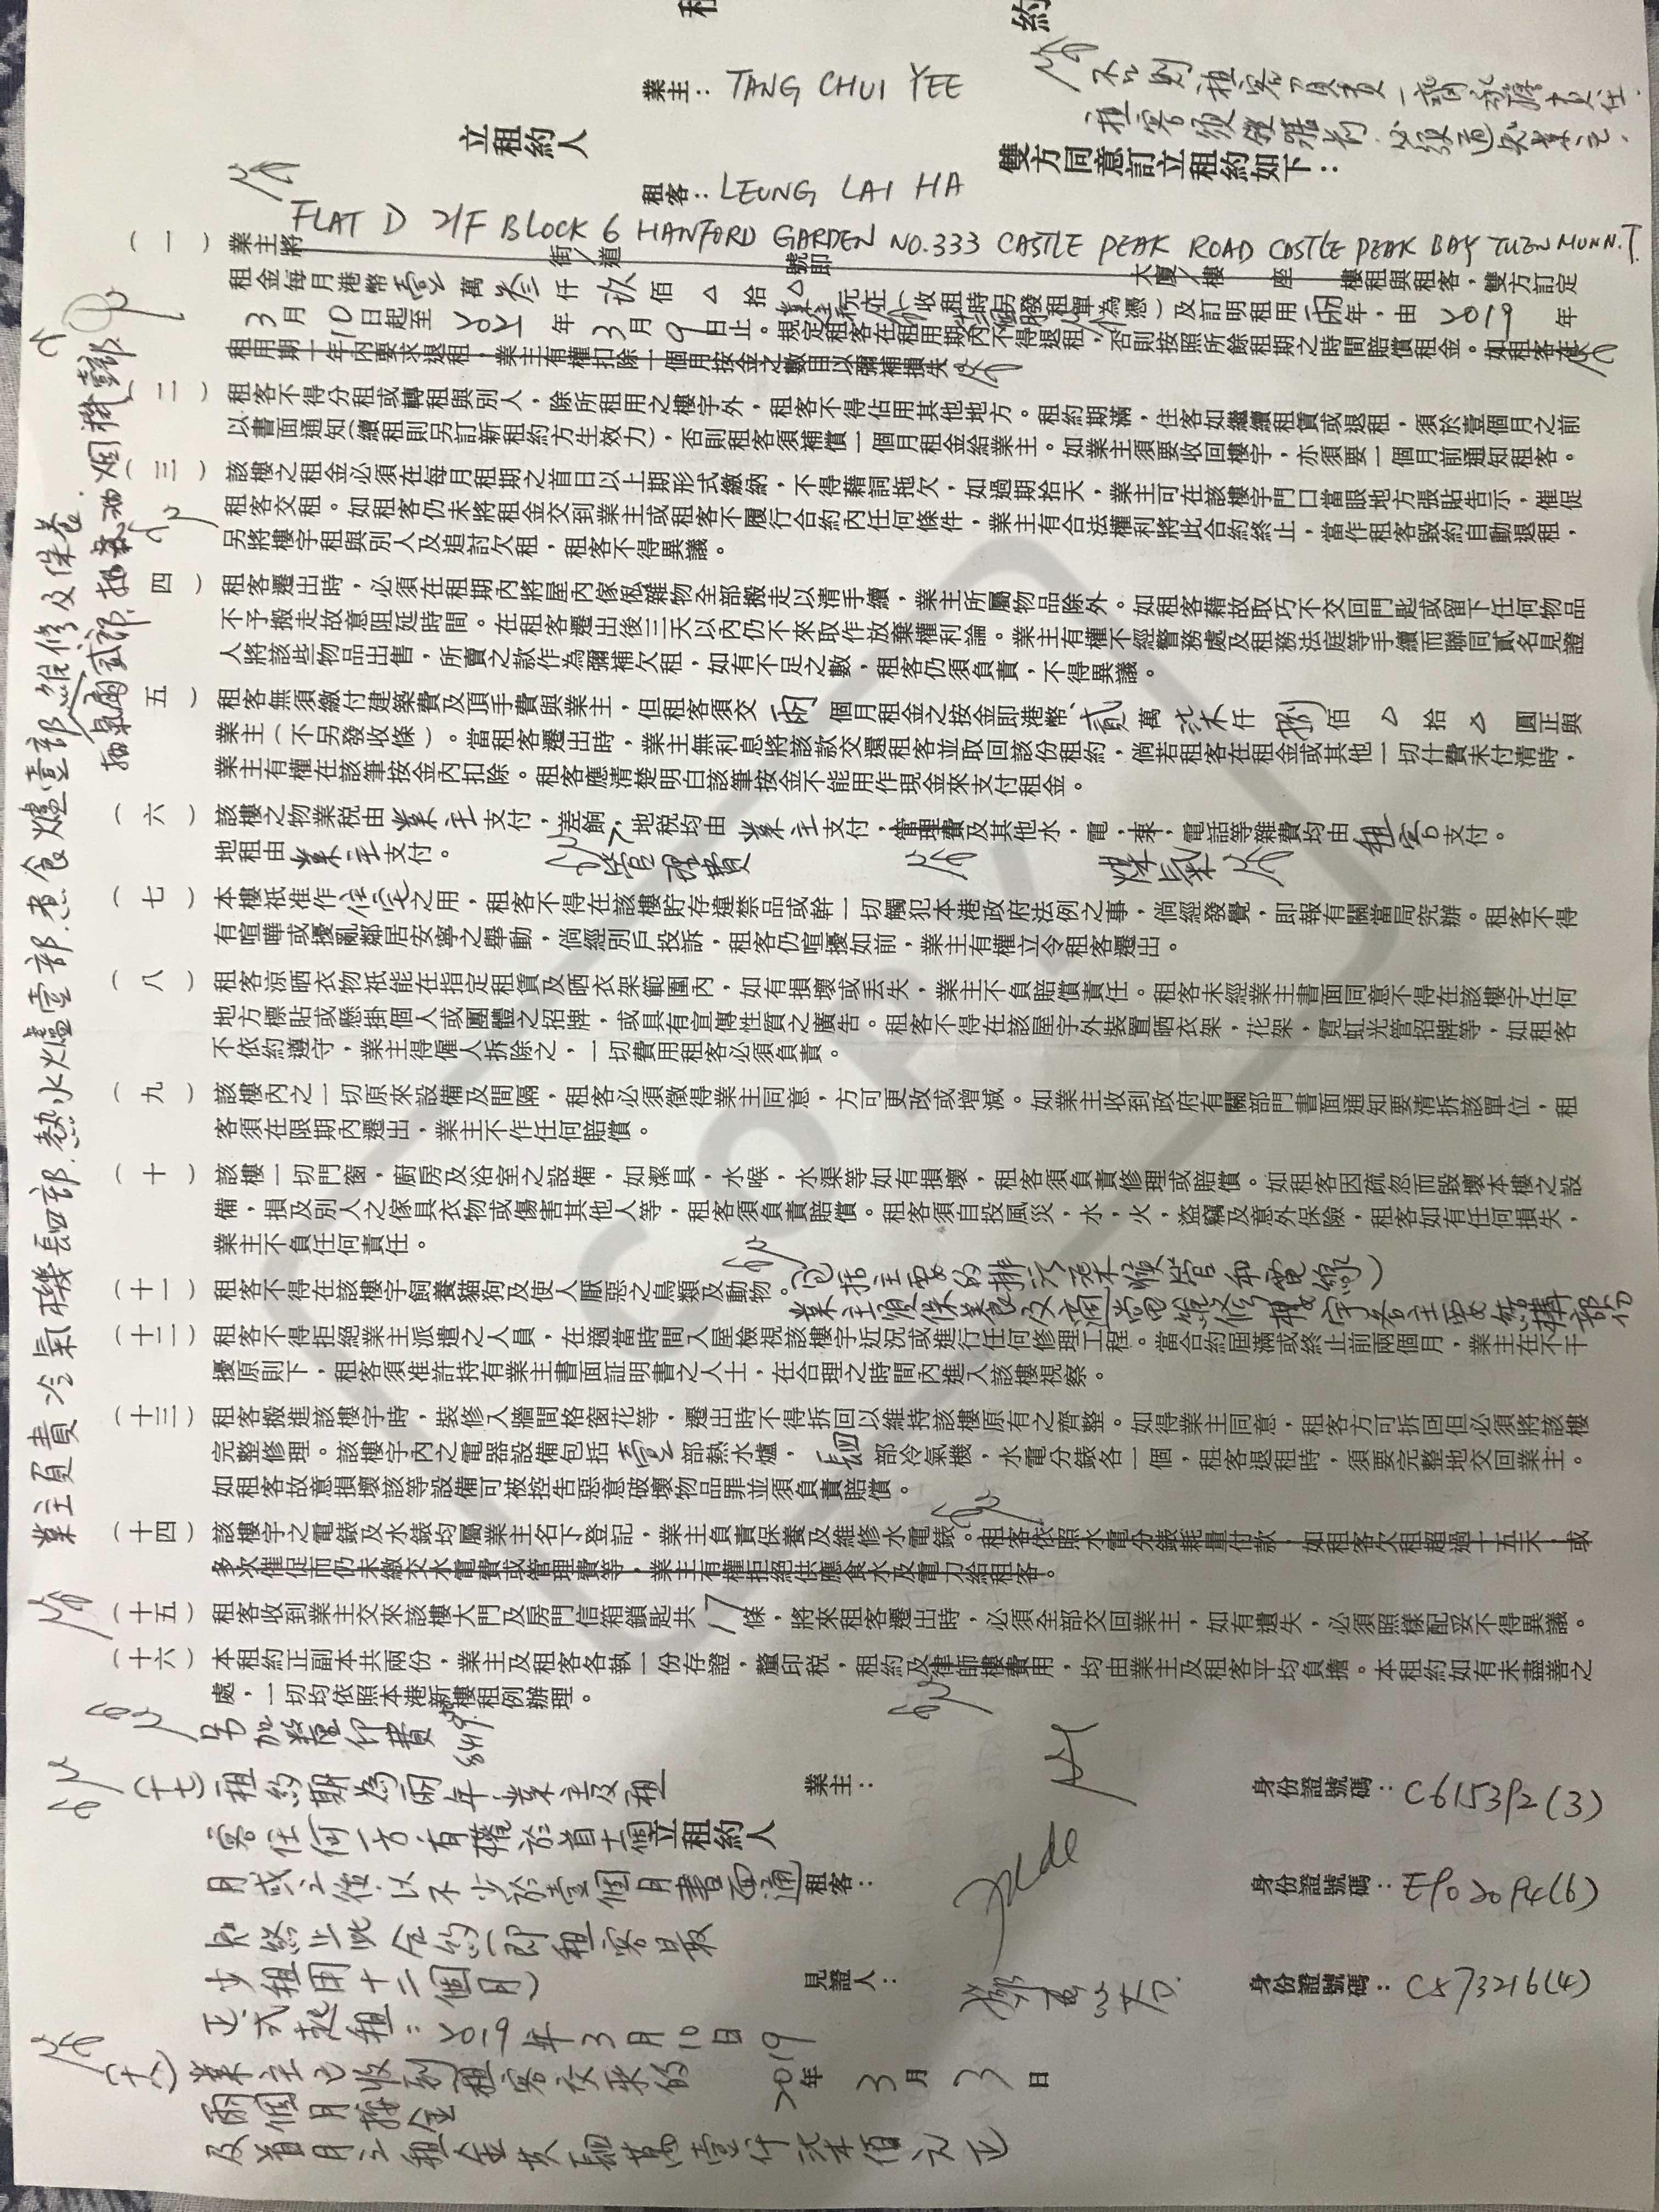 租 約
業主：TANG CHUI YEE
立租約人
租客：LEUNG LAI HA
雙方同意訂立租約如下：
不以則租客須負責一齊承擔責任．
租客須 必須通知業主．
(一) 業主將 FLAT D 21/F BLOCK 6 HANFORD GARDEN NO.333 CASTLE PEAK ROAD CASTLE PEAK BAY TUEN MUN N.T.
街/道 號即 大廈/樓 座 樓租與租客，雙方訂定
租金每月港幣壹萬叁仟玖佰△拾△元正（收租時另發租單為憑）及訂明租用兩年，由2019年
3月10日起至2021年3月9日止。規定租客在租用期內不得退租，否則按照所餘租期之時間賠償租金。如租客在
租用期十年內要求退租，業主有權扣除一個月按金之數目以彌補損失
(二) 租客不得分租或轉租與別人，除所租用之樓宇外，租客不得佔用其他地方。租約期滿，住客如繼續租賃或退租，須於壹個月之前
以書面通知（續租則另訂新租約方生效力），否則租客須補償一個月租金給業主。如業主須要收回樓宇，亦須要一個月前通知租客。
(三) 該樓之租金必須在每月租期之首日以上期形式繳納，不得藉詞拖欠，如過期拾天，業主可在該樓宇門口當眼地方張貼告示，催促
租客交租。如租客仍未將租金交到業主或租客不履行合約內任何條件，業主有合法權利將此合約終止，當作租客毀約自動退租，
另將樓宇租與別人及追討欠租，租客不得異議。
(四) 租客遷出時，必須在租期內將屋內傢俬雜物全部搬走以清手續，業主所屬物品除外。如租客藉故取巧不交回門匙或留下任何物品
不予搬走故意阻延時間。在租客遷出後三天以內仍不來取作放棄權利論。業主有權不經警務處及租務法庭等手續而聯同貳名見證
人將該些物品出售，所賣之款作為彌補欠租，如有不足之數，租客仍須負責，不得異議。
(五) 租客無須繳付建築費及頂手費與業主，但租客須交兩個月租金之按金即港幣貳萬柒仟捌佰△拾△圓正與
業主（不另發收條）。當租客遷出時，業主無利息將該款交還租客並取回該份租約，倘若租客在租金或其他一切什費未付清時，
業主有權在該筆按金內扣除。租客應清楚明白該筆按金不能用作現金來支付租金。
(六) 該樓之物業税由業主支付，差餉，地税均由業主支付，管理費及其他水，電，柬，電話等雜費均由租客支付。
地租由業主支付。 管理費 煤氣
(七) 本樓祇准作住宅之用，租客不得在該樓貯存違禁品或幹一切觸犯本港政府法例之事，倘經發覺，即報有關當局究辦。租客不得
有喧嘩或擾亂鄰居安寧之舉動，倘經別戶投訴，租客仍喧擾如前，業主有權立令租客遷出。
(八) 租客涼晒衣物祇能在指定租賃及晒衣架範圍內，如有損壞或丢失，業主不負賠償責任。租客未經業主書面同意不得在該樓宇任何
地方標貼或懸掛個人或團體之招牌，或具有宣傳性質之廣告。租客不得在該屋宇外裝置晒衣架，花架，霓虹光管招牌等，如租客
不依約遵守，業主得僱人拆除之，一切費用租客必須負責。
(九) 該樓內之一切原來設備及間隔，租客必須徵得業主同意，方可更改或增減。如業主收到政府有關部門書面通知要清拆該單位，租
客須在限期內遷出，業主不作任何賠償。
(十) 該樓一切門窗，廚房及浴室之設備，如潔具，水喉，水渠等如有損壞，租客須負責修理或賠償。如租客因疏忽而毀壞本樓之設
備，損及別人之傢具衣物或傷害其他人等，租客須負責賠償。租客須自投風災，水，火，盜竊及意外保險，租客如有任何損失，
業主不負任何責任。
(包括主要的排污渠喉管和電線)
(十一) 租客不得在該樓宇飼養貓狗及使人厭惡之鳥類及動物。業主須保養及適當維修樓宇各主要結構部份
(十二) 租客不得拒絕業主派遣之人員，在適當時間入屋檢視該樓宇近況或進行任何修理工程。當合約屆滿或終止前兩個月，業主在不干
擾原則下，租客須准許持有業主書面証明書之人士，在合理之時間內進入該樓視察。
(十三) 租客搬進該樓宇時，裝修入牆間格窗花等，遷出時不得拆回以維持該樓原有之齊整。如得業主同意，租客方可拆回但必須將該樓
完整修理。該樓宇內之電器設備包括壹部熱水爐，肆部冷氣機，水電分錶各一個，租客退租時，須要完整地交回業主。
如租客故意損壞該等設備可被控告惡意破壞物品罪並須負責賠償。
(十四) 該樓宇之電錶及水錶均屬業主名下登記，業主負責保養及維修水電錶。租客依照水電分錶耗量付款，如租客欠租超過十五天，或
多次催促而仍未繳交水電費或管理費等，業主有權拒絕供應食水及電力給租客。
(十五) 租客收到業主交來該樓大門及房門信箱鎖匙共7條，將來租客遷出時，必須全部交回業主，如有遺失，必須照樣配妥不得異議。
(十六) 本租約正副本共兩份，業主及租客各執一份存證，釐印税，租約及律師樓費用，均由業主及租客平均負擔。本租約如有未盡善之
處，一切均依照本港新樓租例辦理。
另加釐印費$419.
(十七) 租約期為兩年，業主及租
客任何一方有權於首十二個
月或之後以不少於壹個月書面通
知終止此合約(即租客最
少租用十二個月)
正式起租：2019年3月10日
(十八) 業主已收到租客交來的
兩個月按金
及首月之租金共肆萬壹仟柒佰元正
立租約人
業主：
身份證號碼：C615392(3)
租客：
身份證號碼：E902094(6)
見證人：
身份證號碼：
2019年3月3日
業主負責冷氣機肆部．熱水爐壹部．煮食爐壹部維修及保養．
抽氣扇貳部．抽油烟機壹部
COPY